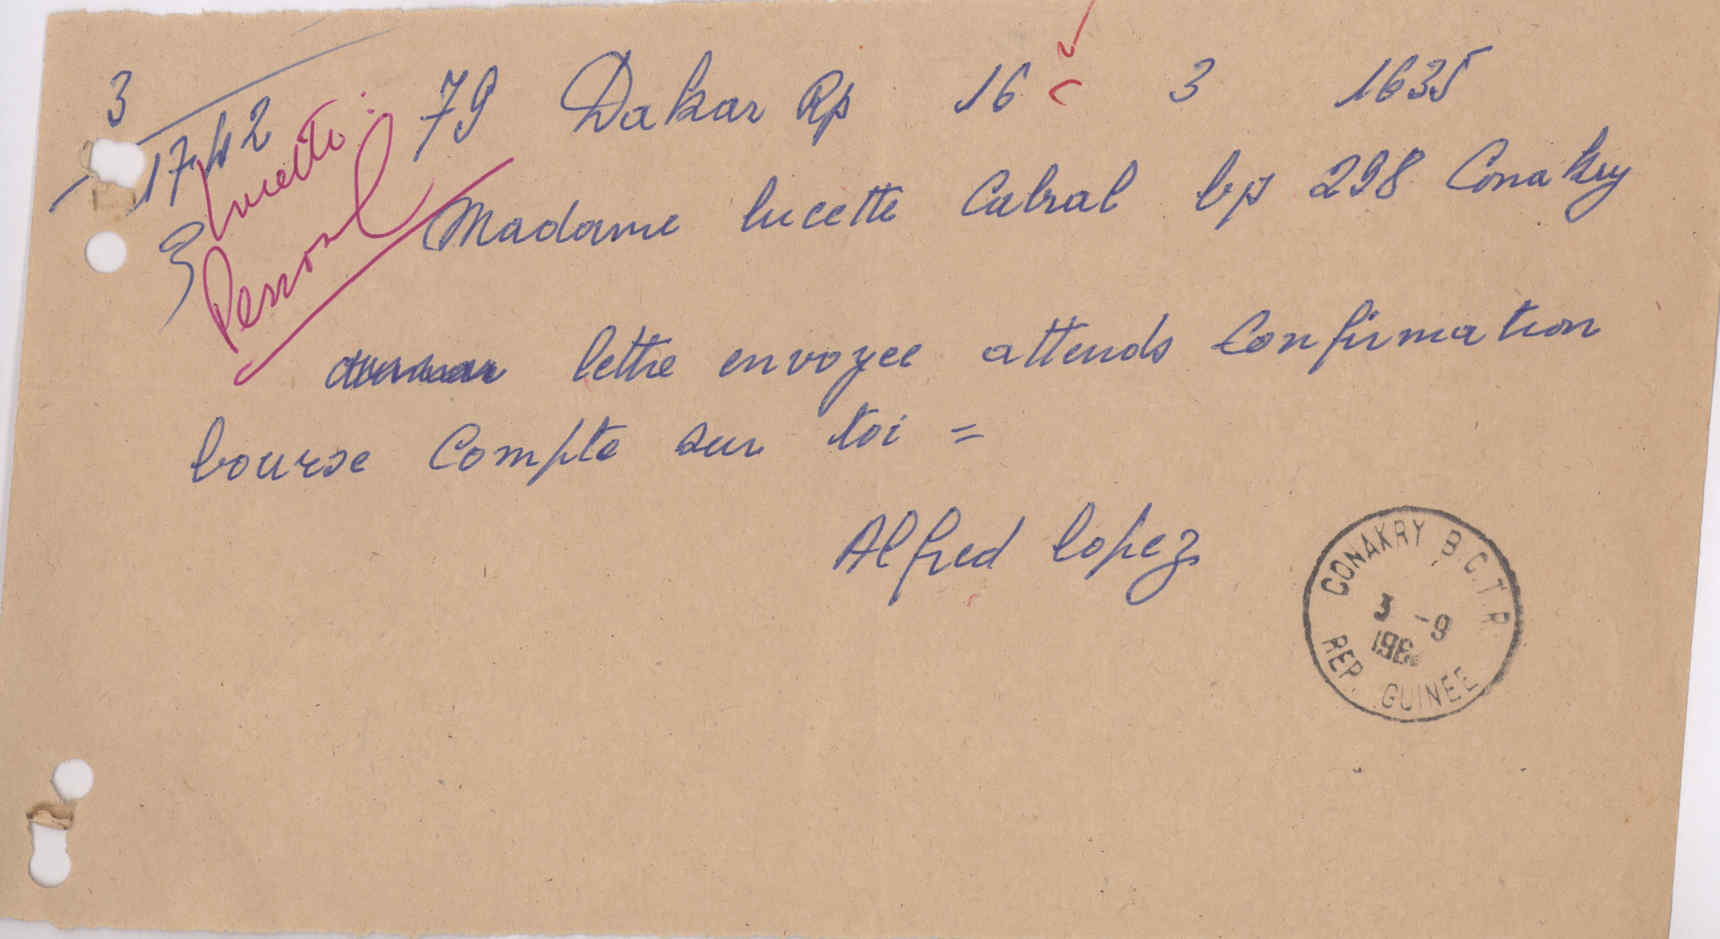 3
17.42
Lucette:
Personal
79 Dakar Rp 16 3 1635
Madame lucette Cabral bp 298 Conakry
lettre envoyee attends Confirmation
bourse Compte sur toi =
Alfred lopez
CONAKRY B.C.T.R.
3 -9
REP. GUINEE